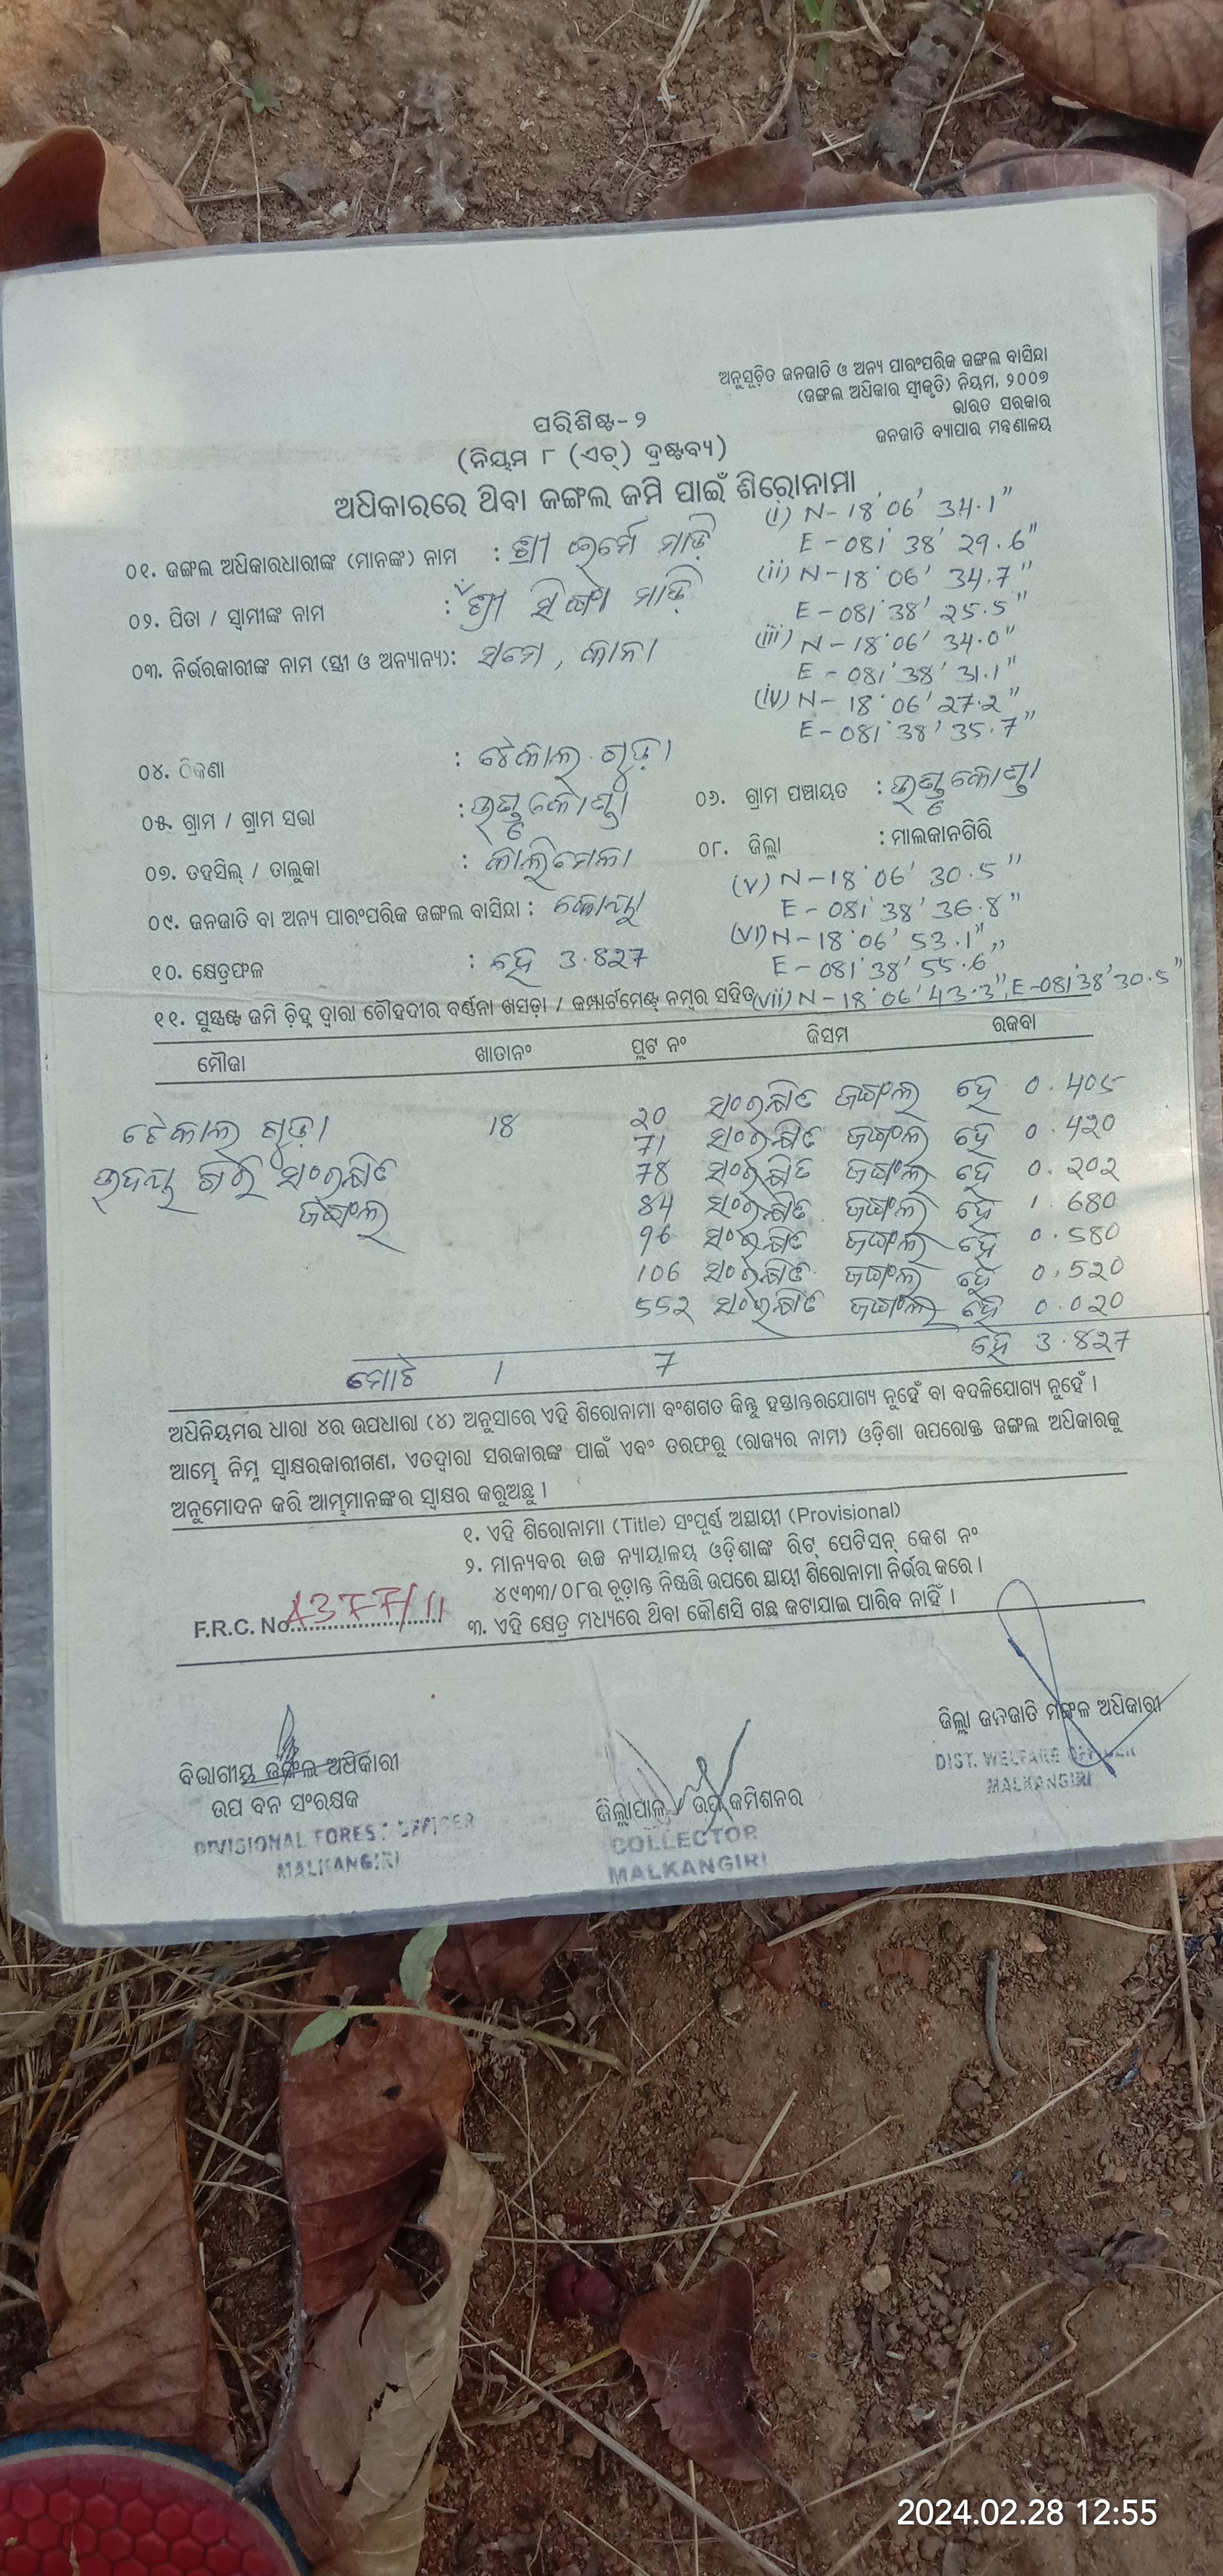 ଅନୁସୂଚିତ ଜନଜାତି ଓ ଅନ୍ୟ ପାରଂପରିକ ଜଙ୍ଗଲ ବାସିନ୍ଦା
(ଜଙ୍ଗଲ ଅଧିକାର ସ୍ୱୀକୃତି) ନିୟମ, ୨୦୦୭
ଭାରତ ସରକାର
ଜନଜାତି ବ୍ୟାପାର ମନ୍ତ୍ରଣାଳୟ
ପରିଶିଷ୍ଟ-୨
(ନିୟମ ୮ (ଏଚ୍) ଦ୍ରଷ୍ଟବ୍ୟ)
ଅଧିକାରରେ ଥିବା ଜଙ୍ଗଲ ଜମି ପାଇଁ ଶିରୋନାମା
(i) N-18°06' 34.1"
E-081°38' 29.6"
୦୧. ଜଙ୍ଗଲ ଅଧିକାରଧାରୀଙ୍କ (ମାନଙ୍କ) ନାମ : ଶ୍ରୀ ମାଡ଼ି
(ii) N-18°06' 34.7"
E-081°38' 25.5"
୦୨. ପିତା / ସ୍ୱାମୀଙ୍କ ନାମ : ଶ୍ରୀ ମାଡ଼ି
(iii) N-18°06' 34.0"
E-081°38' 31.1"
୦୩. ନିର୍ଭରକାରୀଙ୍କ ନାମ (ସ୍ତ୍ରୀ ଓ ଅନ୍ୟାନ୍ୟ):
(iv) N-18°06' 27.2"
E-081°38' 35.7"
୦୪. ଠିକଣା : ଟେକାଲ ଗୁଡ଼ା
୦୫. ଗ୍ରାମ / ଗ୍ରାମ ସଭା :
୦୬. ଗ୍ରାମ ପଞ୍ଚାୟତ :
୦୭. ତହସିଲ୍ / ତାଲୁକା : କାଲିମେଳା
୦୮. ଜିଲ୍ଲା : ମାଲକାନଗିରି
(v) N-18°06' 30.5"
E-081°38' 36.8"
୦୯. ଜନଜାତି ବା ଅନ୍ୟ ପାରଂପରିକ ଜଙ୍ଗଲ ବାସିନ୍ଦା : କୋୟା
(vi) N-18°06' 53.1"
E-081°38' 55.6"
୧୦. କ୍ଷେତ୍ରଫଳ : ହେ 3.827
୧୧. ସୁସ୍ପଷ୍ଟ ଜମି ଚିହ୍ନ ଦ୍ୱାରା ଚୌହଦୀର ବର୍ଣ୍ଣନା ଖସଡ଼ା / କମ୍ପାର୍ଟମେଣ୍ଟ୍ ନମ୍ବର ସହିତ (vii) N-18°06' 43.3", E-081°38' 30.5"
ମୌଜା ଖାତାନଂ ପ୍ଲଟ ନଂ କିସମ ରକବା
ଟେକାଲ ଗୁଡ଼ା 18 20 ସଂରକ୍ଷିତ ଜଙ୍ଗଲ ହେ 0.405
71 ସଂରକ୍ଷିତ ଜଙ୍ଗଲ ହେ 0.420
ଉଦୟ ଗିରି ସଂରକ୍ଷିତ 78 ସଂରକ୍ଷିତ ଜଙ୍ଗଲ ହେ 0.202
ଜଙ୍ଗଲ 84 ସଂରକ୍ଷିତ ଜଙ୍ଗଲ ହେ 1.680
96 ସଂରକ୍ଷିତ ଜଙ୍ଗଲ ହେ 0.580
106 ସଂରକ୍ଷିତ ଜଙ୍ଗଲ ହେ 0.520
552 ସଂରକ୍ଷିତ ଜଙ୍ଗଲ ହେ 0.020
ମୋଟ 1 7 ହେ 3.827
ଅଧିନିୟମର ଧାରା ୪ର ଉପଧାରା (୪) ଅନୁସାରେ ଏହି ଶିରୋନାମା ବଂଶଗତ କିନ୍ତୁ ହସ୍ତାନ୍ତରଯୋଗ୍ୟ ନୁହେଁ ବା ବଦଳିଯୋଗ୍ୟ ନୁହେଁ ।
ଆମ୍ଭେ ନିମ୍ନ ସ୍ୱାକ୍ଷରକାରୀଗଣ, ଏତଦ୍ୱାରା ସରକାରଙ୍କ ପାଇଁ ଏବଂ ତରଫରୁ (ରାଜ୍ୟର ନାମ) ଓଡ଼ିଶା ଉପରୋକ୍ତ ଜଙ୍ଗଲ ଅଧିକାରକୁ
ଅନୁମୋଦନ କରି ଆମ୍ଭମାନଙ୍କର ସ୍ୱାକ୍ଷର କରୁଅଛୁ ।
୧. ଏହି ଶିରୋନାମା (Title) ସଂପୂର୍ଣ୍ଣ ଅସ୍ଥାୟୀ (Provisional)
୨. ମାନ୍ୟବର ଉଚ୍ଚ ନ୍ୟାୟାଳୟ ଓଡ଼ିଶାଙ୍କ ରିଟ୍ ପେଟିସନ୍ କେଶ ନଂ
୪୯୩୩/୦୮ର ଚୂଡ଼ାନ୍ତ ନିଷ୍ପତ୍ତି ଉପରେ ସ୍ଥାୟୀ ଶିରୋନାମା ନିର୍ଭର କରେ ।
୩. ଏହି କ୍ଷେତ୍ର ମଧ୍ୟରେ ଥିବା କୌଣସି ଗଛ କଟାଯାଇ ପାରିବ ନାହିଁ ।
F.R.C. No.
ଜିଲ୍ଲା ଜନଜାତି ମଙ୍ଗଳ ଅଧିକାରୀ
DIST. WELFARE OFFICER
MALKANGIRI
ବିଭାଗୀୟ ଜଙ୍ଗଲ ଅଧିକାରୀ
ଉପ ବନ ସଂରକ୍ଷକ
DIVISIONAL FOREST OFFICER
MALKANGIRI
ଜିଲ୍ଲାପାଳ / ଉପ କମିଶନର
COLLECTOR
MALKANGIRI
2024.02.28 12:55